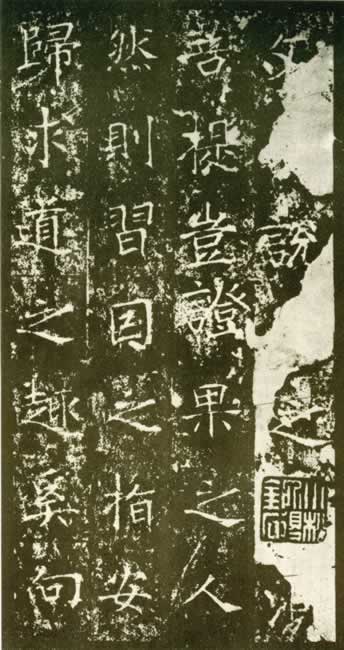 説之
菩提豈證果之人
然則習因之指安
歸求道之趣奚向